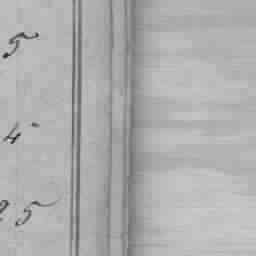 5
4
25